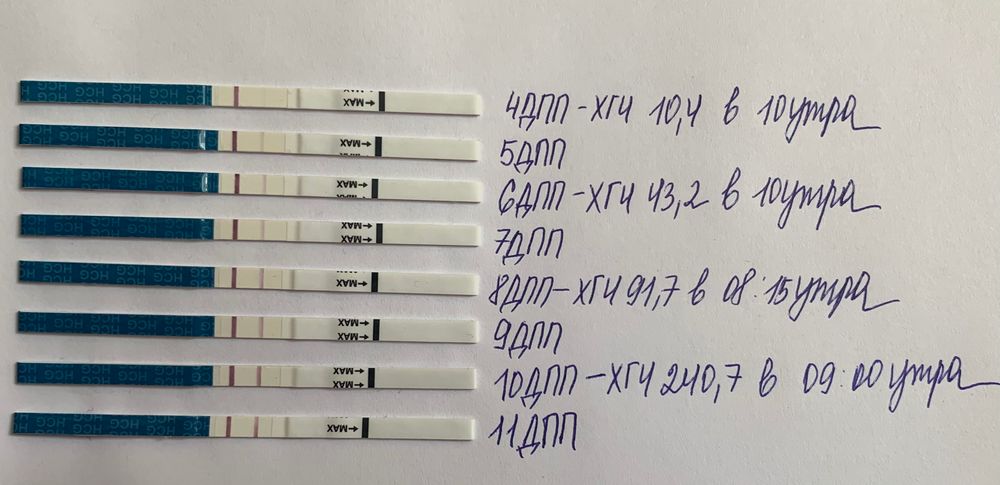 HCG HCG HCG HCG MAX 4ДПП - ХГЧ 10,4 в 10 утра
HCG HCG HCG HCG MAX 5ДПП
HCG HCG HCG HCG MAX 6ДПП - ХГЧ 43,2 в 10 утра
HCG HCG HCG HCG MAX MAX 7ДПП
HCG HCG HCG HCG MAX 8ДПП - ХГЧ 91,7 в 08:15 утра
HCG HCG HCG HCG MAX MAX 9ДПП
HCG HCG HCG HCG MAX MAX 10ДПП - ХГЧ 240,7 в 09:00 утра
HCG HCG HCG HCG MAX 11ДПП